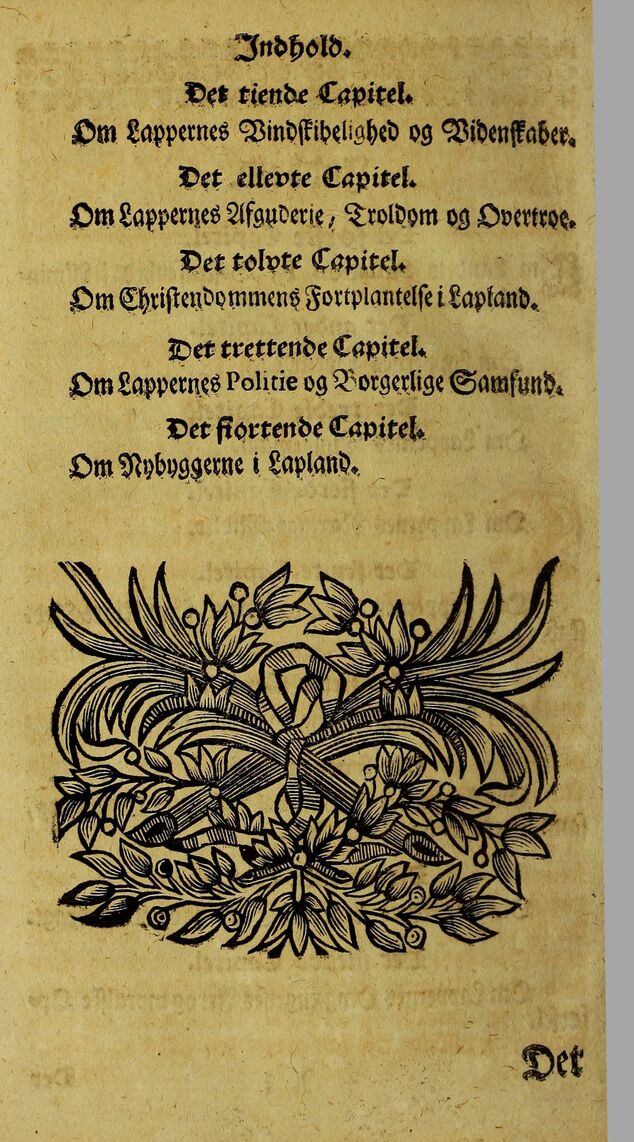 Indhold.
Det tiende Capitel.
Om Lappernes Vindskibelighed og Videnskaber.
Det ellevte Capitel.
Om Lappernes Afguderie, Troldom og Overtroe.
Det tolvte Capitel.
Om Christendommens Fortplantelse i Lapland.
Det trettende Capitel.
Om Lappernes Politie og Borgerlige Samfund.
Det fiortende Capitel.
Om Nybyggerne i Lapland.
Det